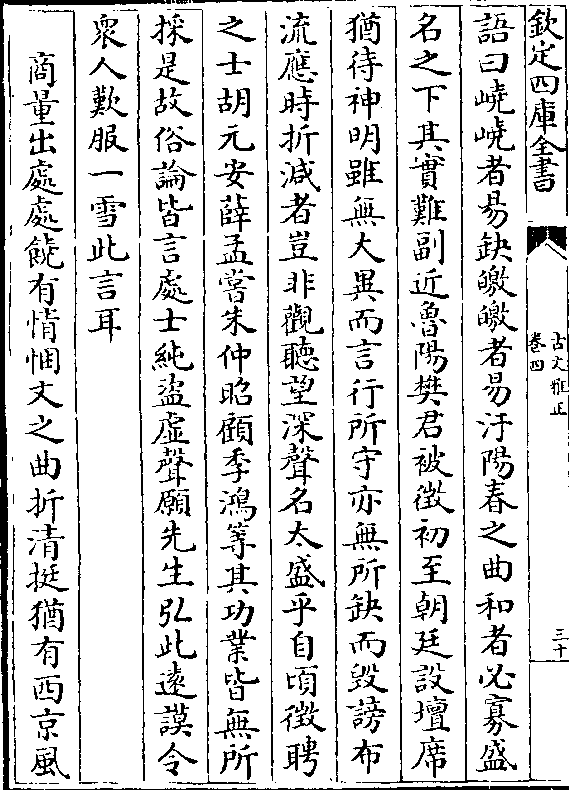 欽定四庫全書
古文雅正
卷四
三十
語曰嶢嶢者易缺皦皦者易汙陽春之曲和者必寡盛
名之下其實難副近魯陽樊君被徵初至朝廷設壇席
猶待神明雖無大異而言行所守亦無所缺而毀謗布
流應時折減者豈非觀聽望深聲名太盛乎自頃徵聘
之士胡元安薛孟嘗朱仲昭顧季鴻等其功業皆無所
採是故俗論皆言處士純盜虛聲願先生弘此遠謨令
衆人歎服一雪此言耳
商量出處處饒有情悃文之曲折清挺猶有西京風